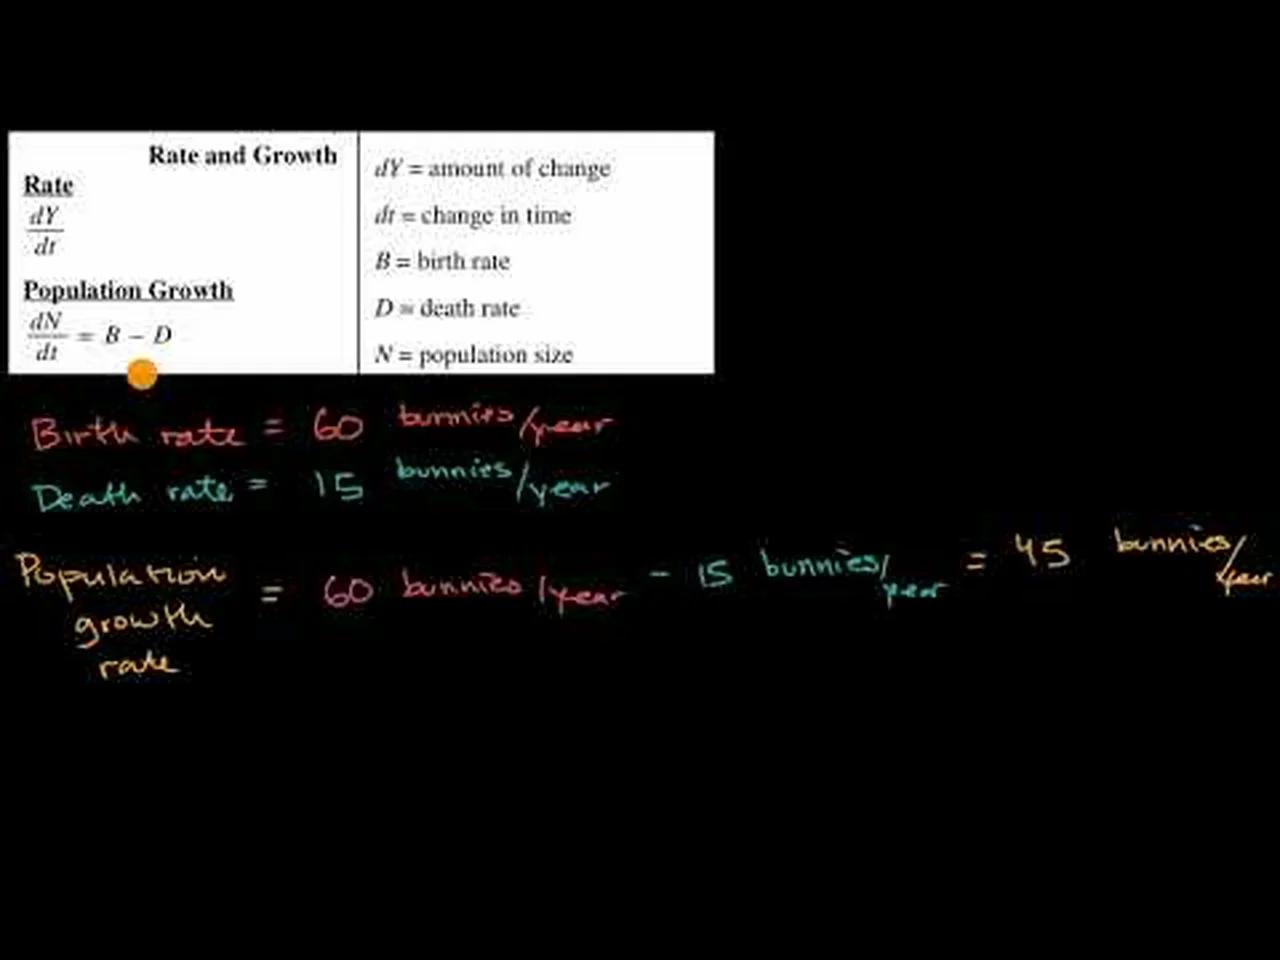 Rate and Growth
Rate
dY
dt
Population Growth
dN
dt
= B – D
dY = amount of change
dt = change in time
B = birth rate
D = death rate
N = population size
Birth rate = 60 bunnies/year
Death rate = 15 bunnies/year
Population growth rate = 60 bunnies/year - 15 bunnies/year = 45 bunnies/year